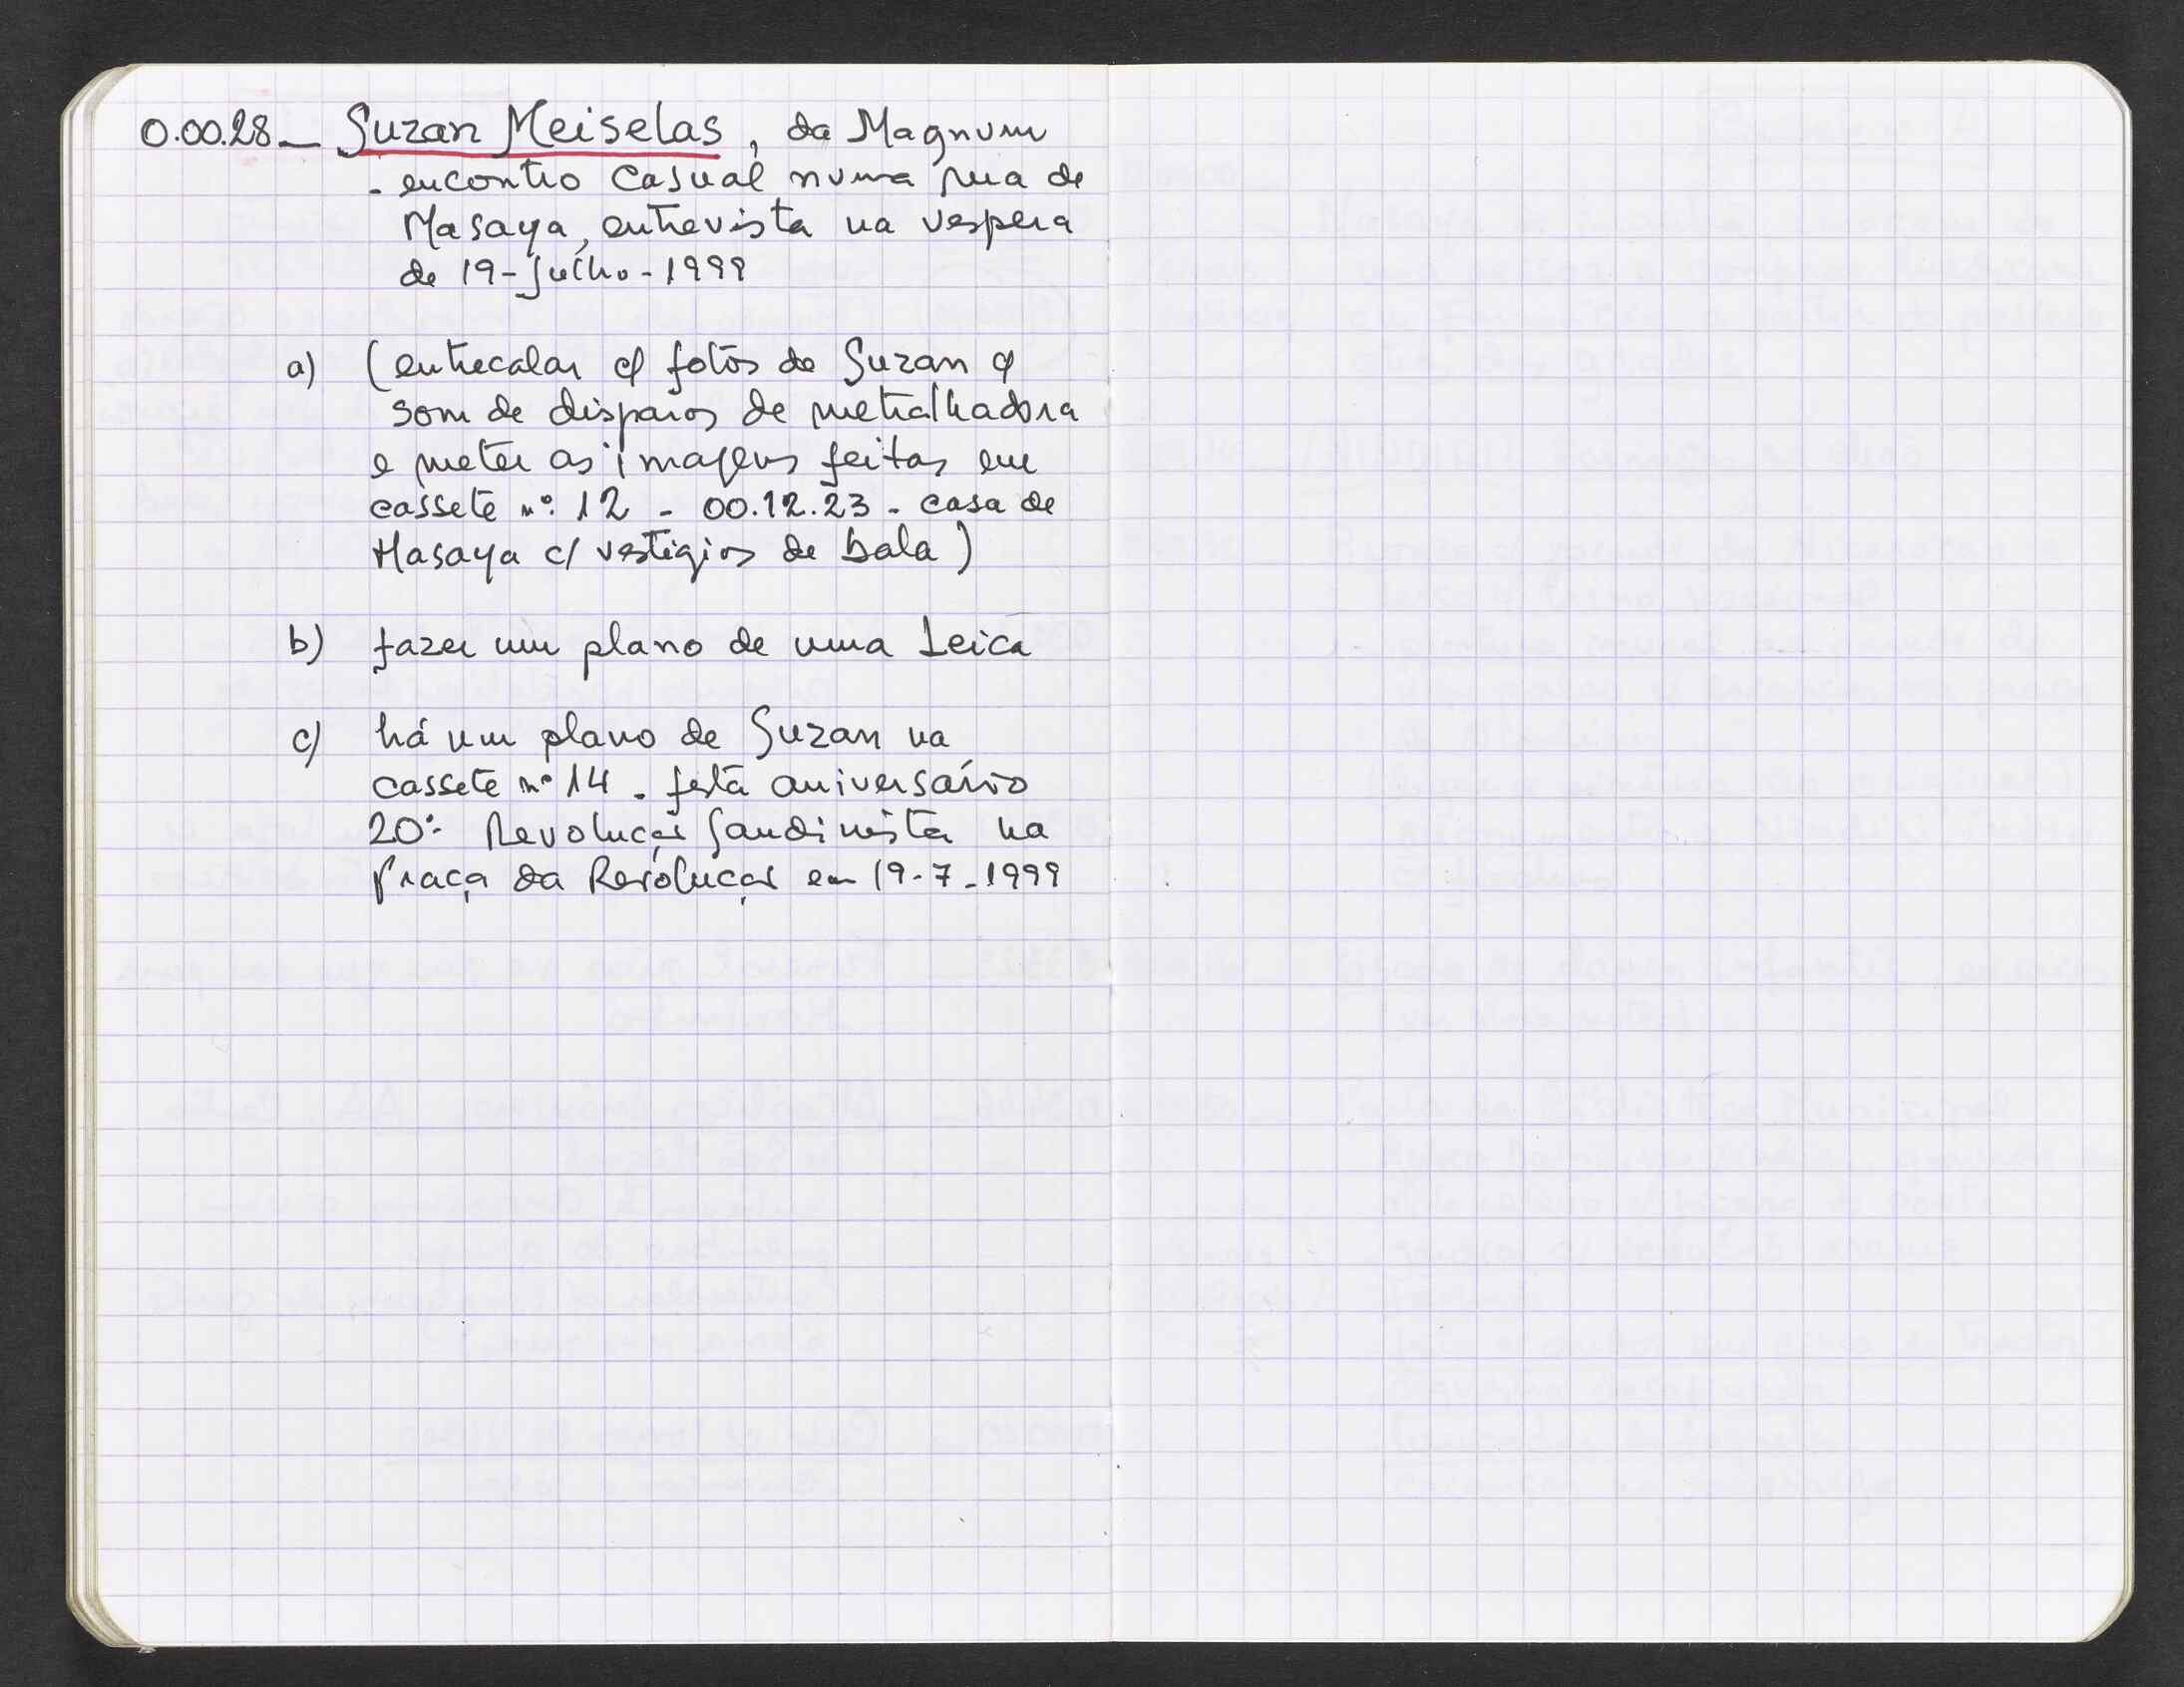 0.00.28 _ Suzan Meiselas, da Magnum
- encontro casual numa rua de
Masaya, entrevista na vespera
de 19-Julho-1999
a) (entrecalar c/ fotos de Suzan c/
som de disparos de metralhadora
e meter as imagens feitas em
cassete nº 12 - 00.12.23 - casa de
Masaya c/ vestigios de bala)
b) fazer um plano de uma Leica
c) há um plano de Suzan na
cassete nº 14 - festa aniversário
20º Revolução Sandinista na
Praça da Revolução em 19-7-1999